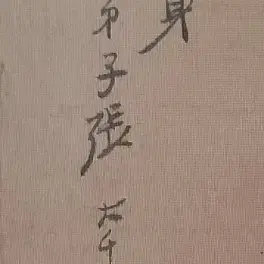 身
弟子張大千